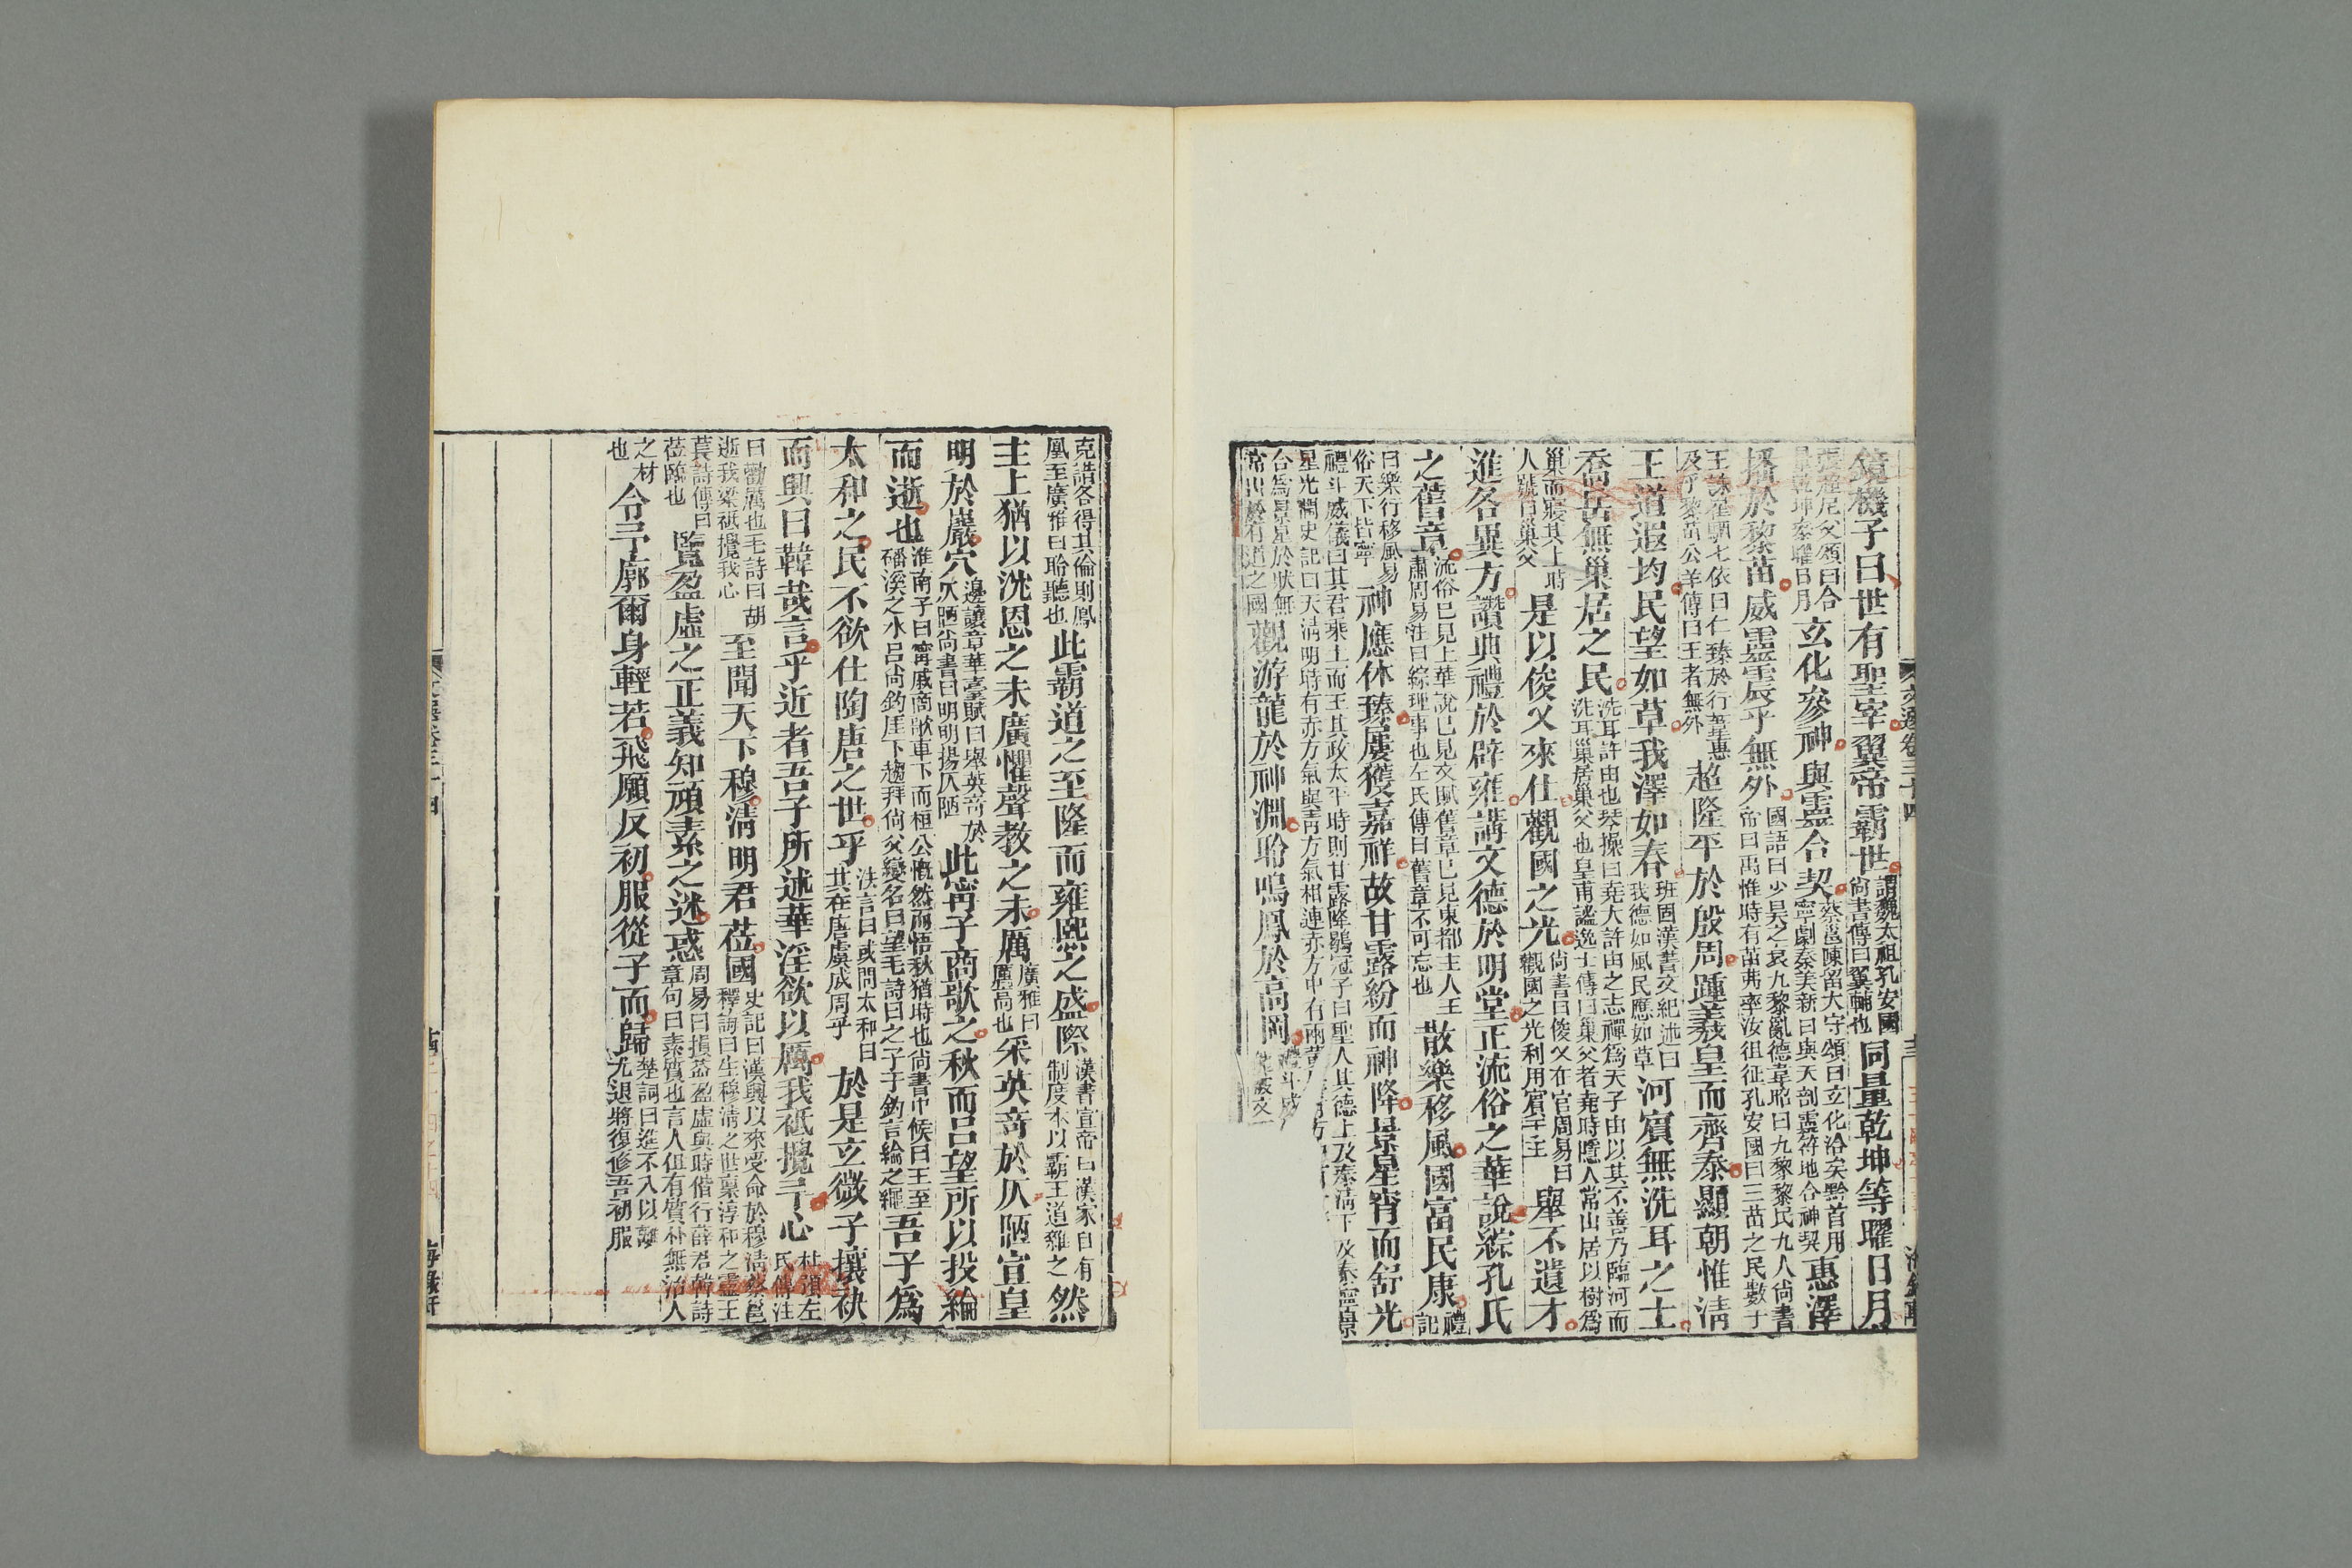 鏡機子曰世有聖宰翼帝霸世謂魏太祖孔安國尚書傳曰翼輔也同量乾坤等曜日月
張超尼父頌曰合量乾坤參曜日月玄化參神與靈合契蔡邕陳留太守頌曰玄化洽矣黔首用寧劇秦美新曰與天剖靈符地合神契惠澤
播於黎苗威靈震乎無外國語曰少昊之衰九黎亂德韋昭曰九黎黎民九人尚書帝曰禹惟時有苗弗率汝徂征孔安國曰三苗之民數于
王誅崔駰七依曰仁臻於行葦惠及乎黎苗公羊傳曰王者無外超隆平於殷周踵羲皇而齊泰顯朝惟淸
王道遐均民望如草我澤如春班固漢書文紀述曰我德如風民應如草河濱無洗耳之士
喬岳無巢居之民洗耳許由也琴操曰堯大許由之志禪為天子由以其不善乃臨河而洗耳巢居巢父也皇甫謐逸士傳曰巢父者堯時隱人常山居以樹為
巢而寢其上時人號曰巢父是以俊乂來仕觀國之光尚書曰俊乂在官周易曰觀國之光利用賓于王舉不遺才
進各異方讚典禮於辟雍講文德於明堂正流俗之華說綜孔氏
之舊章流俗已見上華說已見文賦舊章已見東都主人王肅周易注曰綜理事也左氏傳曰舊章不可忘也散樂移風國富民康禮記
曰樂行移風易俗天下皆寧神應休臻屢獲嘉祥故甘露紛而神降景星宵而舒光
禮斗威儀曰其君乘土而王其政太平時則甘露降鶡冠子曰聖人其德上及泰淸下及泰寧景星光潤史記曰天淸明時有赤方氣與靑方氣相連赤方中有兩黃
台為景星景星於狀無常出於有道之國觀游龍於神淵聆鳴鳳於高岡禮斗威
文選卷三十四
十三
海錄軒
克諧各得其倫則鳳凰至廣雅曰聆聽也此霸道之至隆而雍熙之盛際漢書宣帝曰漢家自有制度本以霸王道雜之然
主上猶以沈恩之未廣懼聲教之未厲廣雅曰厲高也采英奇於仄陋宣皇
明於巖穴邊讓章華臺賦曰舉英奇於仄陋尚書曰明明揚仄陋此甯子商歌之秋而呂望所以投綸
而逝也淮南子曰甯戚商歌車下而桓公慨然而悟秋猶時也尚書中候曰王至磻溪之水呂尚釣厓下趨拜尚父變名曰望毛詩曰之子于釣言綸之繩吾子為
太和之民不欲仕陶唐之世乎法言曰或問太和曰其在唐虞成周乎於是玄微子攘袂
而興曰韡哉言乎近者吾子所述華淫欲以厲我祗攪予心杜預左氏傳注
曰勸厲也毛詩曰胡逝我梁祗攪我心至聞天下穆淸明君莅國史記曰漢興以來受命於穆淸蔡邕釋誨曰生穆淸之世稟淳和之靈王
萇詩傳曰莅臨也覽盈虛之正義知頑素之迷惑周易曰損益盈虛與時偕行薛君韓詩章句曰素質也言人但有質朴無治人
之材也令予廓爾身輕若飛願反初服從子而歸楚詞曰進不入以離尤退將復修吾初服